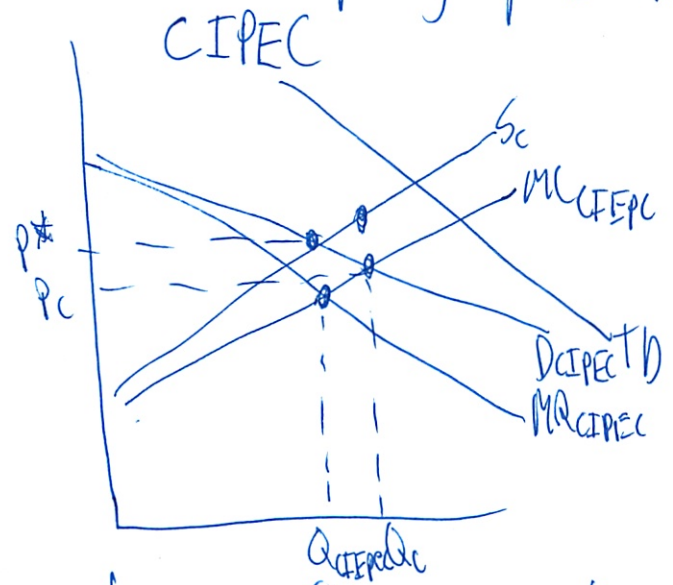 CIPEC
Sc
MCCIEPC
P*
Pc
DCIPEC TD
MRCIPEC
QCIEpec Qc